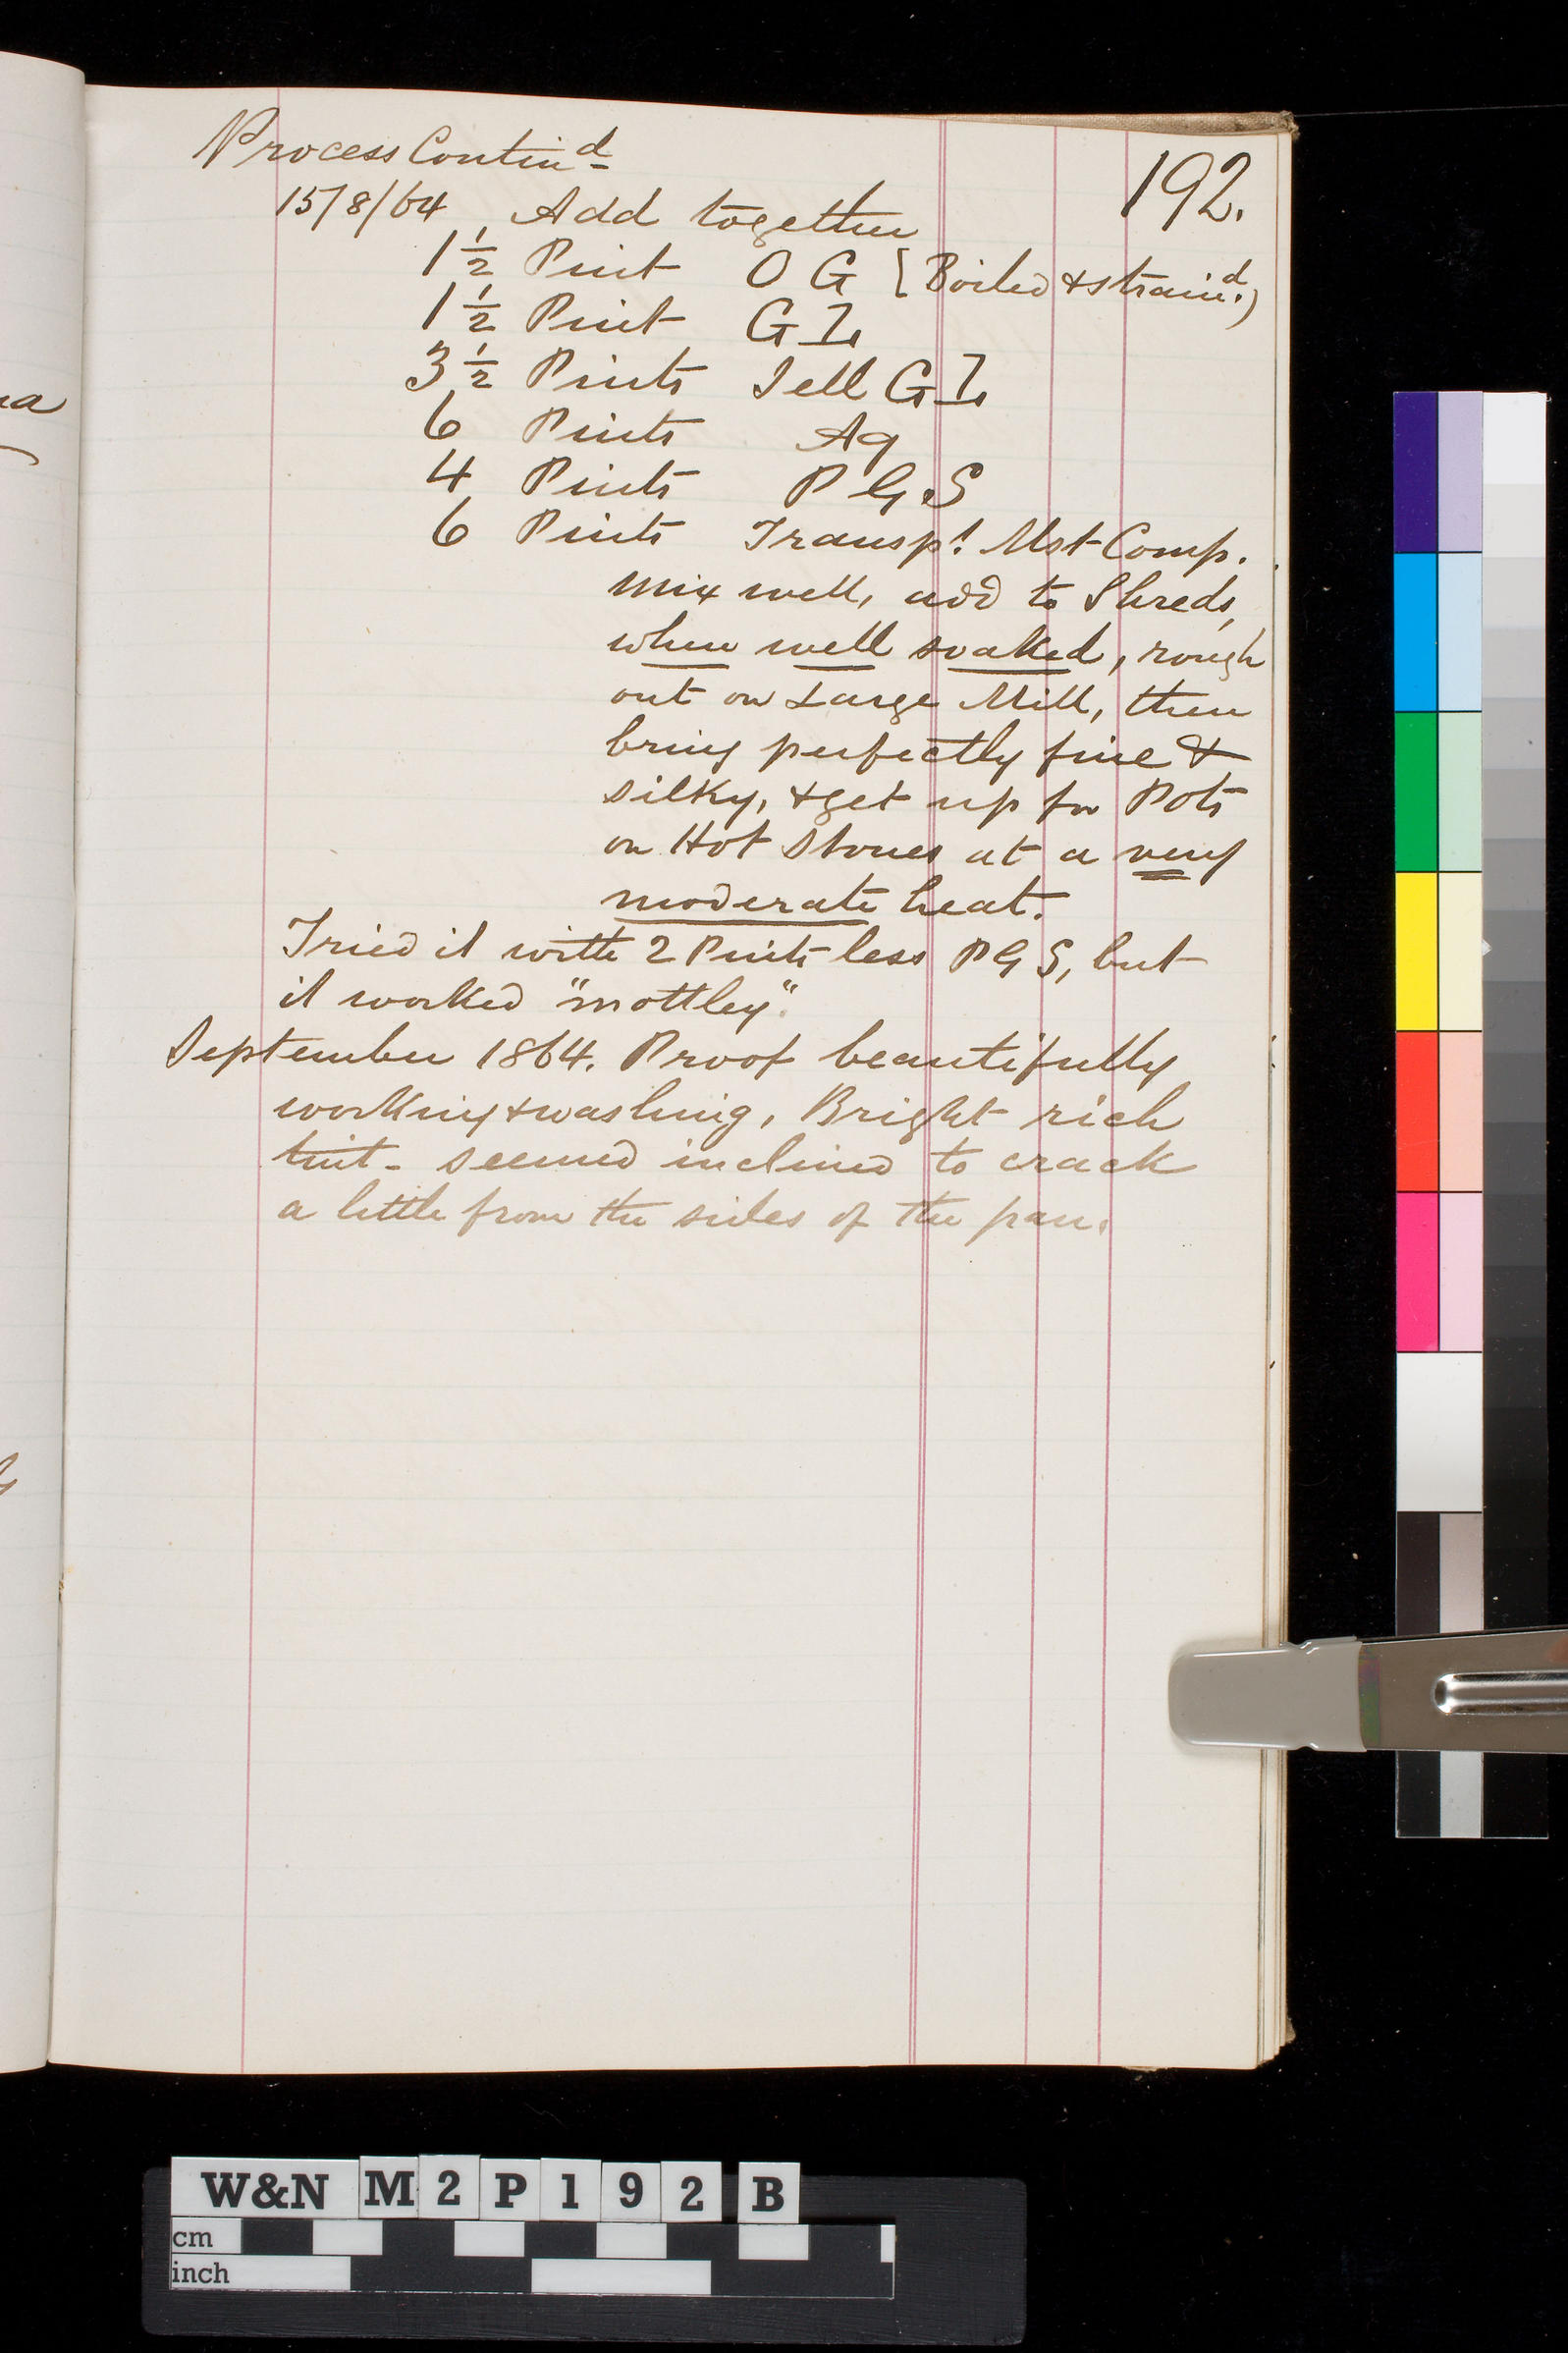 Process Contind
192.
15/8/64, Add together
1 1/2 Pint O G [Boiled & straind.)
1 1/2 Pint G I
3 1/2 Pints Jell G I
6 Pints Aq
4 Pints P G S
6 Pints Transpt. Mst Comp.
mix well, add to Shreds,
when well soaked, rough
out on Large Mill, then
bring perfectly fine &
silky, & get up for Pots
on Hot Stones at a very
moderate heat.
Tried it with 2 Pints less P G S, but
it worked "mottley".
September 1864. Proof beautifully
working & washing, Bright rich
tint - seemed inclined to crack
a little from the sides of the pan.
W&N M2P192 B
cm
inch